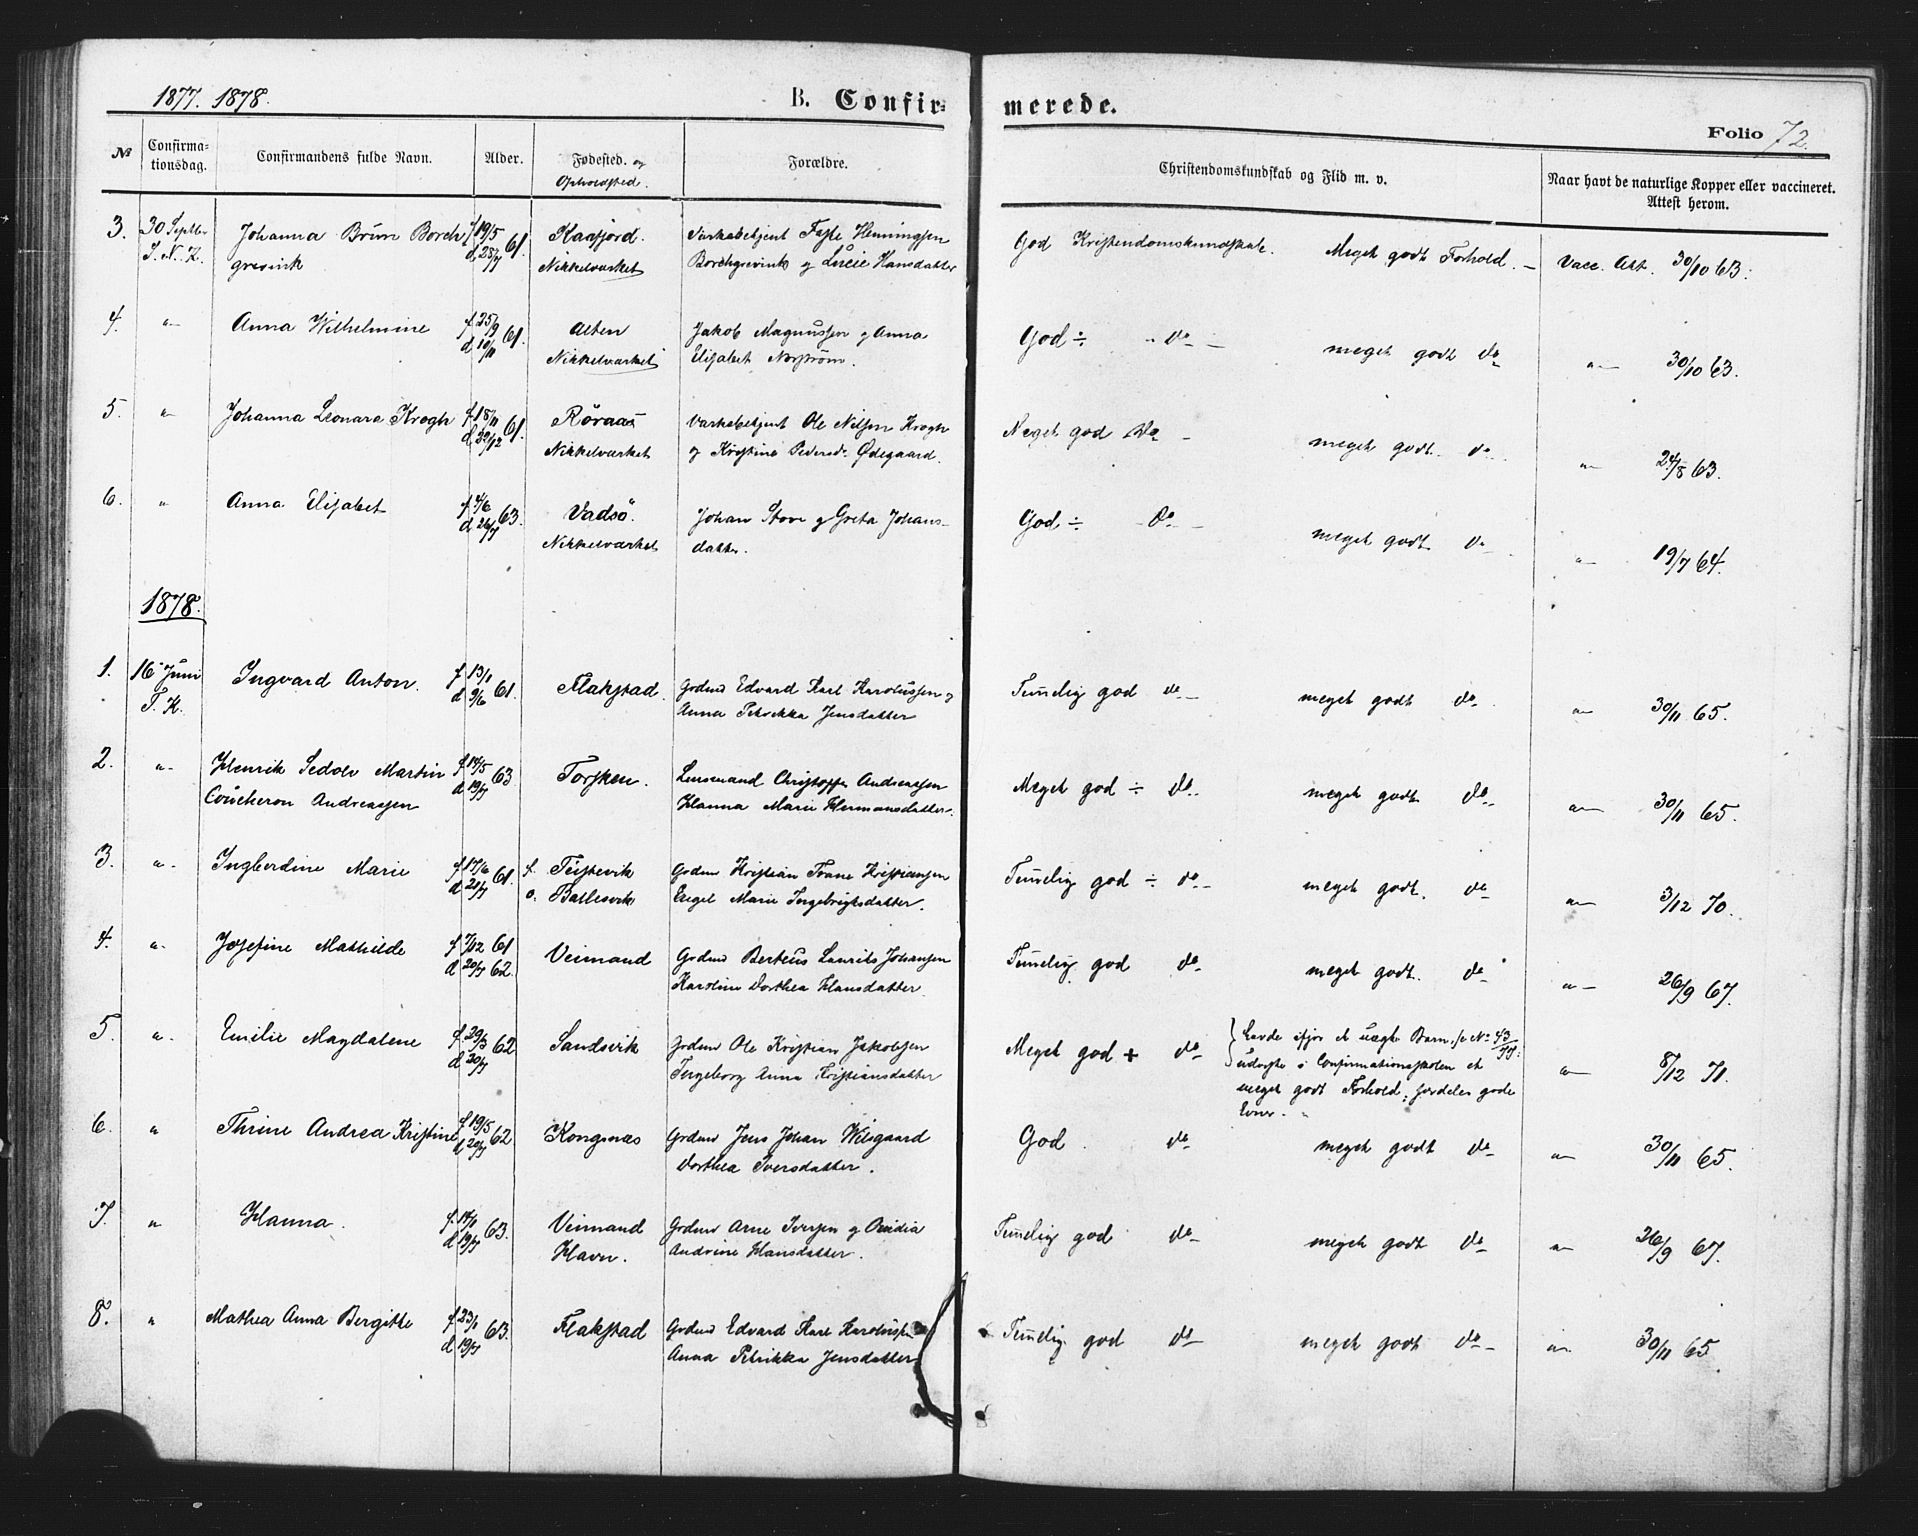 1877. 1878.
B. Confir-
merede.
Folio 72.
№
Confirma-
tionsdag.
Confirmandens fulde Navn.
Alder.
Fødested. og
Opholdsted.
Forældre.
Christendomskundskab og Flid m. v.
Naar havt de naturlige Kopper eller vaccineret.
Attest herom.
3. 30 Septbr Johanna Brün Borch f 19/5 61. Kaafjord. Værksbetjent Faste Henningsen God Kristendomskundskab. Meget godt Forhold. — Vacc. Att. 30/10 63.
grevink d. 28/7 Nikkelværket Borchgrevink og Lucie Hansdatter
4. " Anna Wilhelmine f 25/9 61. Alten Jakob Magnussen og Anna God ÷ - do - meget godt do " 30/10 63.
d 10/11 Nikkelværket Elisabet Nyström.
5. " Johanna Leonara Krogh f. 18/11 61. Røraas Værksbetjent Ole Nilsen Krogh Meget god do - meget godt do " 24/8 63.
d. 29/12 Nikkelværket og Kristine Pedersdr Ødegaard.
6. " Anna Elisabet f 4/6 63. Vadsö. Johan Stove og Greta Johans- God ÷ - do - meget godt do " 19/7 64.
d 26/7 Nikkelværket datter.
1878.
1. 16 Juni Ingvard Anton. f 13/1 61. Flakstad. Grdmd Edvard Karl Karolussen og Temelig god do - meget godt do " 30/11 65.
T. K. d 9/6 Anna Petrikka Jensdatter
2. " Henrik Sedolv Martin f 14/5 63 Torsken. Leusmand Christoffer Andreassen Meget god ÷ do. meget godt do " 30/11 65.
Coucheron Andreassen d 19/7 Hanna Marie Hermansdatter.
3. " Ingberdine Marie f 17/6 61. f. Teistevik Grdmd Kristian Trane Kristiansen Temelig god ÷ do - meget godt. do " 3/12 70.
d 21/7 o. Ballesvik Engel Marie Ingebrigtsdatter.
4. " Josefine Mathilde f 7/12 61 Veimand Grdmd Berteus Laurits Johansen Temelig god do meget godt. do " 26/9 67.
d 20/7 62. Karoline Dorthea Hansdatter.
5. " Emilie Magdalene f. 29/3 62 Sandsvik Grdmd Ole Kristian Jakobsen Meget god + do Havde ifjor et uægte Barn, se No 43/77: " 8/12 71.
d 20/7 Ingeborg Anna Kristiansdatter udviste i Confirmationsskolen et
meget godt Forhold; fordeles gode
Evner.
6. " Thrine Andrea Kristine f 19/5 62 Kongsnæs Grdmd Jens Johan Wilsgaard God. do meget godt do " 30/11 65.
d 20/7 Dorthea Iversdatter.
7. " Hanna. f. 14/6 63. Veimand Grdmd Arne Iversen og Ovidia Temelig god do meget godt do " 26/9 67.
d 19/7 Havn. Andrine Hansdatter.
8. " Mathea Anna Bergitte f 23/1 63. Flakstad Grdmd Edvard Karl Karolussen Temelig god do meget godt do - " 30/11 65.
d 19/7 Anna Petrikka Jensdatter